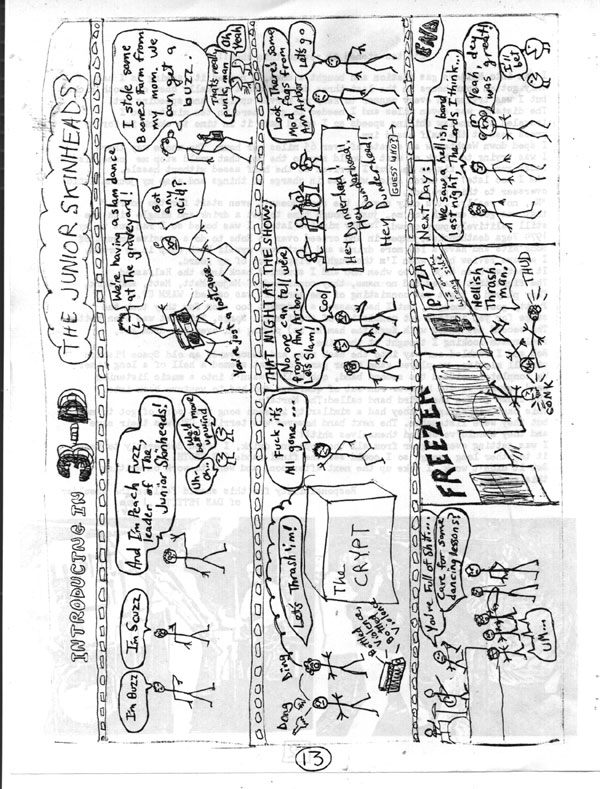 INTRODUCING IN 3-D THE JUNIOR SKINHEADS
I'm Buzz
I'm Scuzz
And I'm Peach Fuzz,
leader of The
Junior Skinheads!
Uh
oh..
We'd
better move
upwind
We're having a slam dance
at The graveyard!
Got
any
acid?
You're just a lost cause...
I stole some
Boones Farm from
my mom. We
can get a
buzz.
That's really
punk, man
Oh
Yeah
Dong Ding
Let's Thrash 'im!
Bottled
Violence
Bottled
Violence
The
CRYPT
Fuck, it's
All gone ...
THAT NIGHT AT THE SHOW:
No one can tell we're
from Ann Arbor.
Let's Slam!
Cool
Hey Dunderhead!
Hey Dunderhead!
Hey Dunderhead!
GUESS WHO?
Look, There's some
Mod fags from
Ann Arbor
Let's go
You're Full of Shit...
Care for some
dancing lessons?
UM...
FREEZER
PIZZA
Hellish
Thrash,
man.
THUD
CONK
Next Day:
We saw a hellish band
last night, The Nerds I think...
Yeah, dey
was great!
I'll
bet
END
13